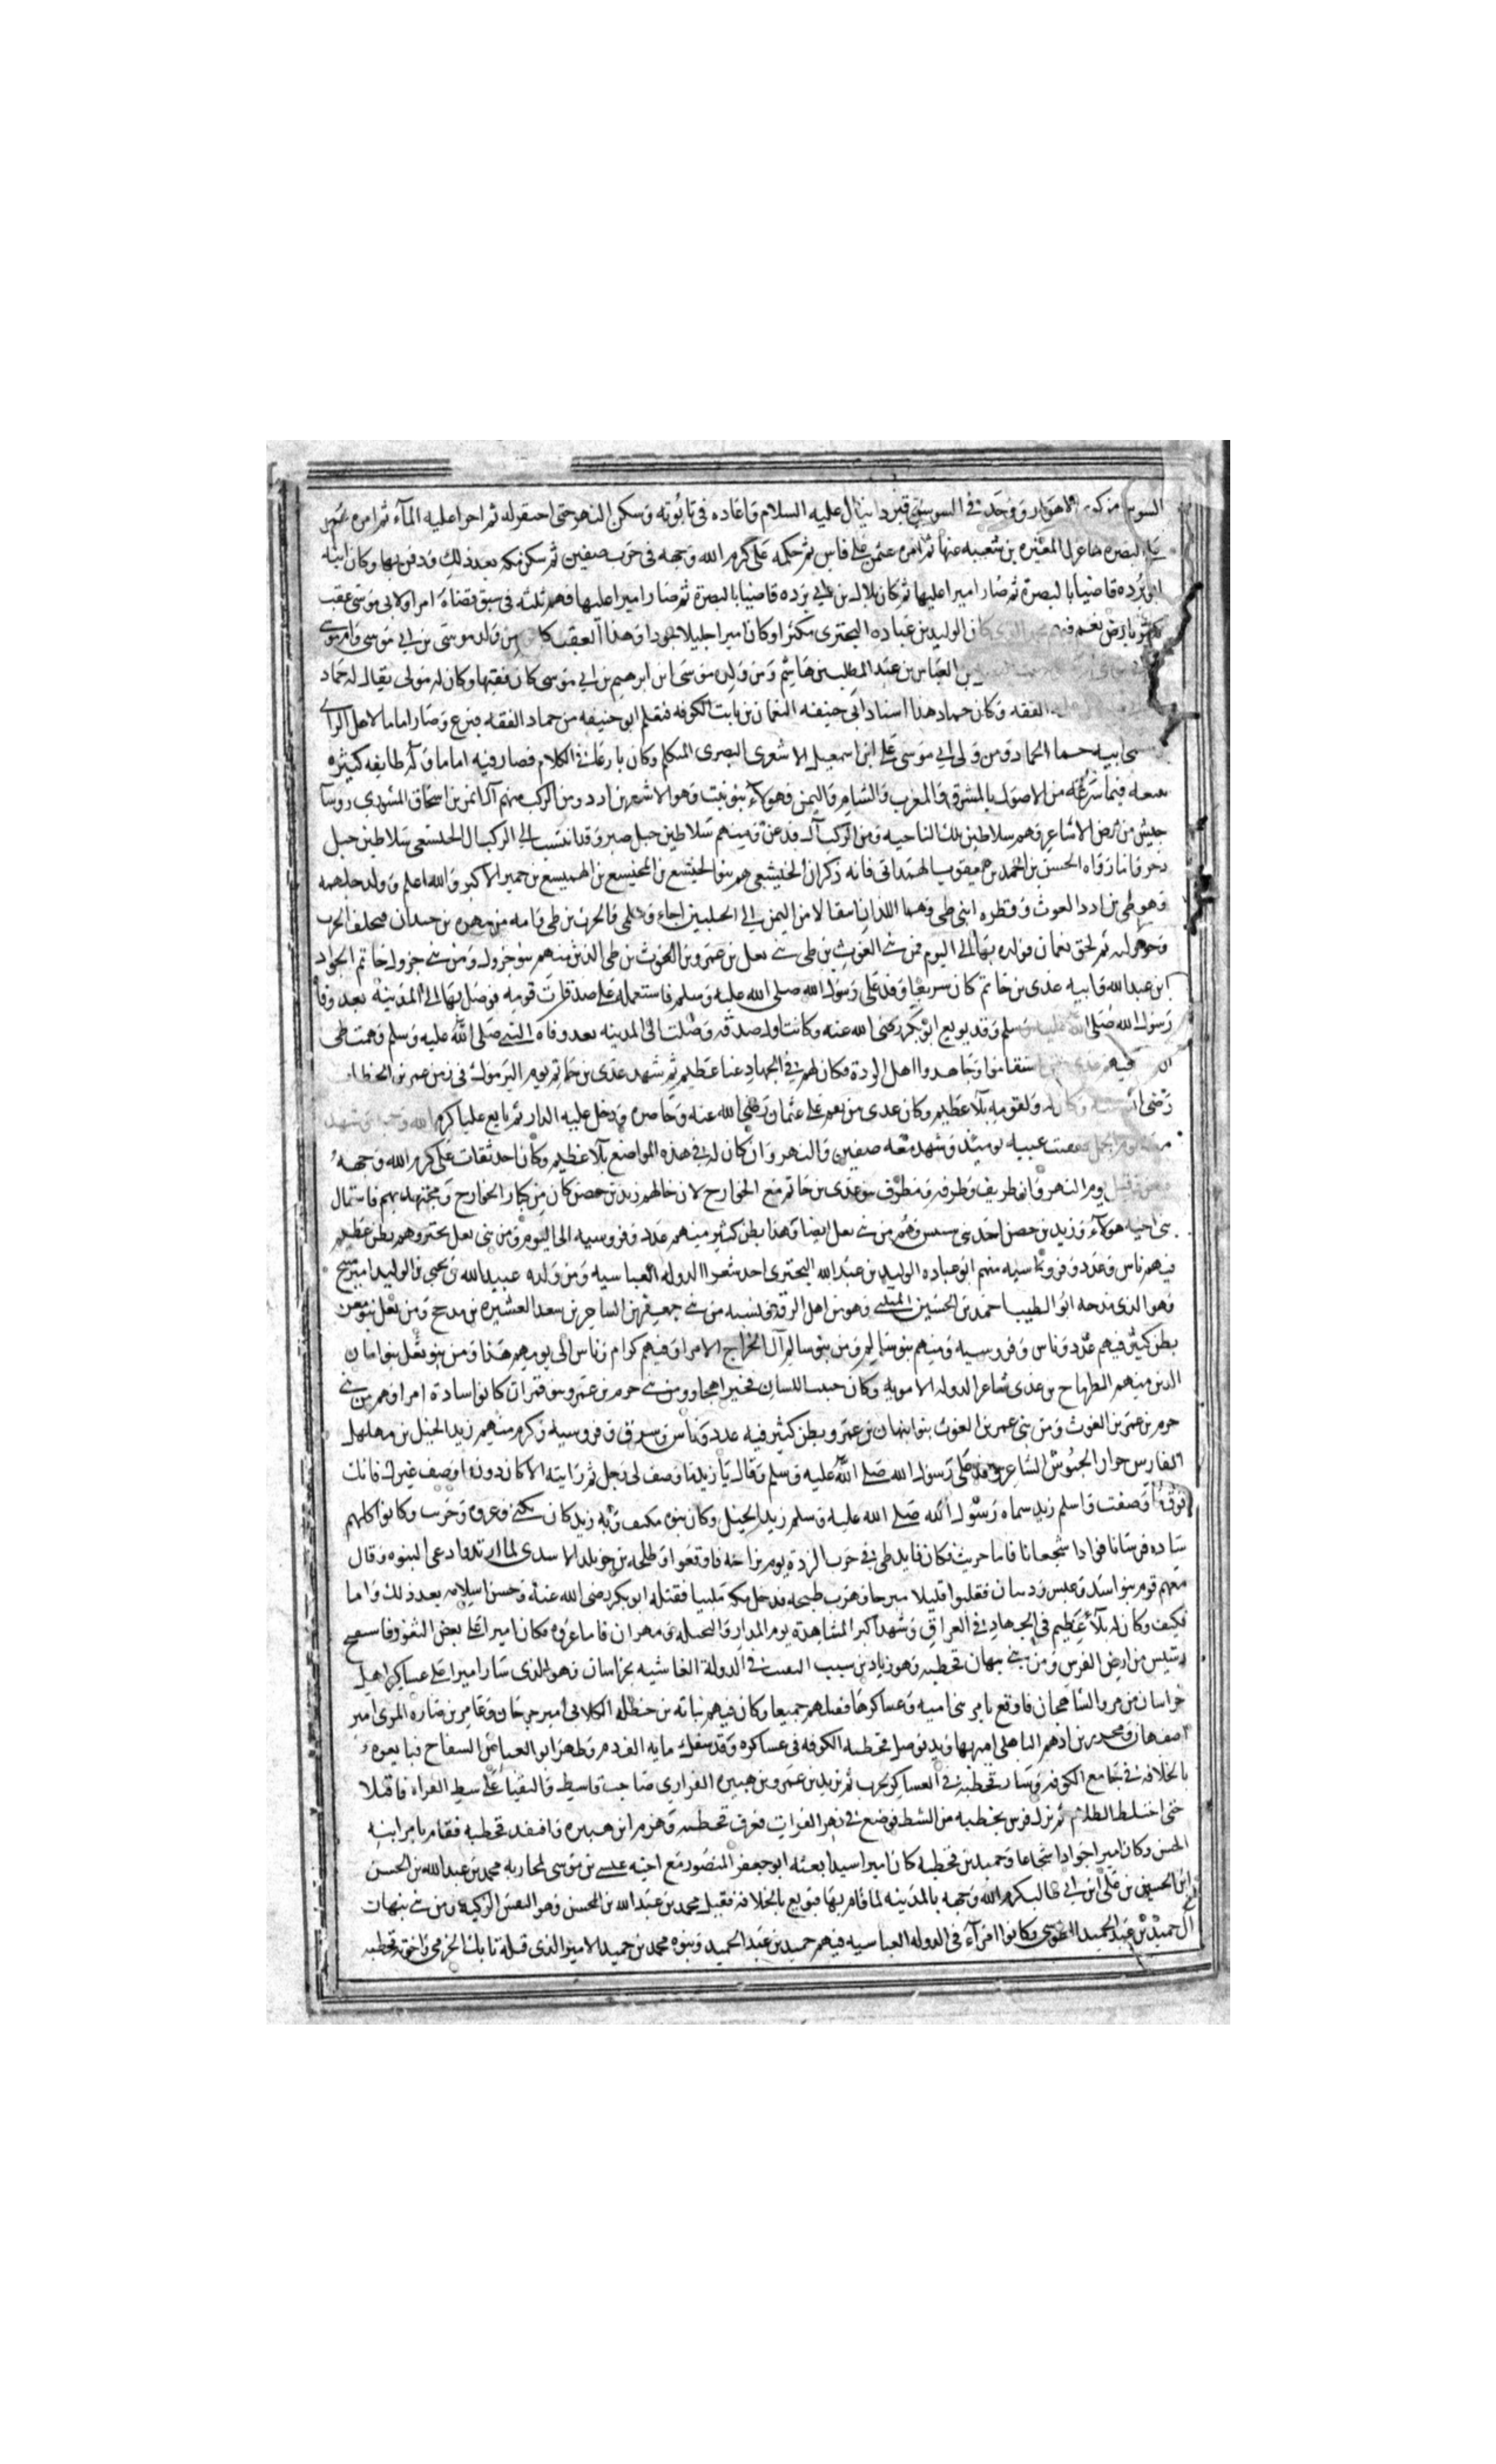 السوس من كور الاهواز ووجد في السوس قبر دانيال عليه السلام واعاده في تابوته وسكر النهر حتى احتفر له ثم اجرا عليه المآء ثم امره عمر
على البصره لما عزل المغيره بن شعبه عنها ثم امره عثمن على فاس ثم حكمه على كرم الله وجهه في حرب صفين ثم سكن مكه بعد ذلك ودفن بها وكان ابنه
ابو برده قاضيا بالبصرة ثم صار اميرا عليها ثم كان بلال بن ابي برده قاضيا بالبصرة ثم صار اميرا عليها فهم ثلثه في سبق قضاة امرا ولابي موسى عقب
كان الوليد بن عباده البحترى مكثرا وكان اميرا جليلا جوادا وهذا العقب من ولد موسى بن ابي موسى وام موسى
بن العباس بن عبد المطلب بن هاشم ومن ولده موسى ابن ابرهيم بن ابي موسى كان فقيها وكان له مولى يقال له حماد
الفقه وكان حماد هذا استاد ابى حنيفه النعمان بن ثابت الكوفه فتعلم ابو حنيفه من حماد الفقه فبرع وصار اماما لاهل الراي
ومن ولد ابي موسى على ابن اسمعيل الاشعرى البصرى المتكلم وكان بارعا في الكلام فصار فيه اماما وله طايفه كثيره
فيما شرعه من الاصول بالمشرق والمغرب والشام واليمن فهولاء بنو نبت وهو الاشعر بن ادد ومن الركب منهم آل ايمن بن اسحاق المسودى روسآ
جيش من ارض الاشاعر وهم سلاطين تلك الناحيه ومن الركب آل ومنهم سلاطين جبل صبر وقد انتسب الى الركب ال سلاطين جبل
واما رواه الحسن بن احمد بن يعقوب الهمدانى فانه ذكر ان الخليشعى هم بنو الخيشع بن الهميسع بن حمير الاكبر والله اعلم وولد جلهمه
وهو طى بن ادد الغوث وفطره ابنى طى وهما اللذان انتقالا من اليمن الى الجبلين اجاء وسلمى والحرث بن طى وامه من مهره بن حيدان فتخلف الحرب
وحولهم ثم لحق بعمان فولده بها الى اليوم فمن بنى الغوث بن طى بنى بن عمرو بن الغوث بن طى الذين منهم بنو جرول ومن بنى جرول حاتم الجواد
ابن عبد الله وابنه عدى بن حاتم كان شريفا وفد على رسول الله صلى الله عليه وسلم فاستعمله على صدقات قومه فوصل بها الى المدينه بعد وفاة
رسول الله صلى الله عليه وسلم وقد بويع ابو بكر رضى الله عنه وكانت اول صدقه وصلت الى المدينه بعد وفاة النبى صلى الله عليه وسلم وهمت طى
استقاموا وجاهدوا اهل الردة فكان لهم في الجهاد غنا عظيم ثم شهد عدى بن حاتم يوم اليرموك فى زمن عمر بن الخطاب
رضى الله عنه وكان له ولقومه بلآ عظيم وكان عدى من نقم على عثمان رضى الله عنه وحاصره ودخل عليه الدار ثم بايع عليا كرم الله وجهه وشهد
معه يوم الجمل ففقئت عينه يومئذ وشهد معه صفين والنهروان كان له في هذه المواضع بلآ عظيم وكان احد ثقات على كرم الله وجهه
يوم النهروان طريف وطرفه ومطرف بنو عدى بن حاتم مع الخوارج لان خالهم زيد بن حصن كان من كبار الخوارج ومجتهد بهم فاستمال
بنى اخيه هولآء وزيد بن حصن احد بنى سنبس وهم من بنى ثعل ايضا وهذا بطن كثير منهم عدد وفروسيه الى اليوم ومن بنى ثعل بحتر وهم بطن عظيم
فيهم ناس وعدد وفروسيه منهم ابو عباده الوليد بن عبد الله البحترى احد شعرا الدوله العباسيه ومن ولده عبيد الله بن يحيى بن الوليد امير منبج
وهو الذى مدحه ابو الطيب احمد بن الحسين المتنبى وهو من اهل الرقه ونسبه من بنى جعفر بن سعد العشيره من مذحج ومن ثعل بنو معن
بطن كثير فيهم عدد وناس وفروسيه ومنهم بنو سالم ومن بنو سالم آل الجراح الامرا وفيهم كرام وناس الى يومهم هذا ومن بنو ثعل بنو امان
الذين منهم الطرماح بن عدى شاعر الدوله الامويه وكان خبيث اللسان ومن بنى جرم بن عمرو بنو قتران كانوا سادة امرا وهم من بنى
جرم بن عمرو بن الغوث ومن بنى عمر بن الغوث بنو نبهان بن عمرو بطن كثير فيه عدد وناس وفروسيه وكرم منهم زيد الخيل بن مهلهل
الفارس الشاعر وفد على رسول الله صلى الله عليه وسلم وقال يا زيد ما وصف لى رجل ثم رايته الا كان دون ما وصف غيرك فانك
فوق ما وصفت واسلم زيد سماه رسول الله صلى الله عليه وسلم زيد الخيل وكان بنوه مكنف وبه زيد كان يكنى وعروه وحرب وكانوا كلهم
ساده فرسانا قوادا شجعانا فاما حريث فكان قايد طى في حرب الردة يوم بزاخه فاوقعوا وطلحه بن خويلد الاسدى لما ارتدوا دعى النبوه وقال
معهم قومه بنو اسد وعبس وذبيان فقلبوا قليلا هرب طليحه فدخل مكه ملبيا فقتله ابو بكر رضى الله عنه وحسن اسلامه بعد ذلك واما
مكنف وكان له بلاء عظيم فى الجهاد في العراق وشهد اكبر المشاهدة يوم المدار والنخيله ومهران فاما عروه فكان اميرا على بعض الثغور
من ارض الفرس ومن بنى نبهان قحطبه وهو زياد بن شبيب النقيب في الدولة الهاشميه بخراسان وهو الذى سار اميرا على عساكر اهل
خراسان من مرو الشاهجان فاوقع بامر بنى اميه وعساكرها فقتلهم جميعا وكان فيهم نباته بن حنظله الكلابى امير جرجان وعامر بن ضباره المرى امير
اصفهان ومحمد بن ادهم الباهلى اميرها وتوصل قحطبه الكوفه فى عساكره وقد سفك مايه الف دم وظهر ابو العباس السفاح فبايعوه
بالخلافه في جامع الكوفه وسار قحطبه في العساكر لحرب ثم يزيد بن عمرو بن هبيره الفزاري صاحب واسط والتقيا على شط الفرات فاقتتلا
حتى اختلط الظلام ثم نزل فرس بقحطبه من الشط فوضع في نهر الفرات فغرق قحطبه وهزم ابن هبيره وافتقد قحطبه فقام بامر ابنه
الحسن وكان اميرا جوادا شجاعا وحميد بن قحطبه كان اميرا سيدا بعثه ابو جعفر المنصور مع اخيه عيسى بن موسى لمحاربه محمد بن عبد الله بن الحسن
ابن الحسين بن على ابن ابي طالب كرم الله وجهه بالمدينه لما قام بها فبويع بالخلافة فقتل محمد بن عبد الله بن المحسن وهو النفس الزكيه ومن بنى نبهان
آل حميد بن عبد الحميد الطوسى وكانوا امرآء فى الدوله العباسيه فيهم حميد بن عبد الحميد وبنوه محمد بن حميد الامير الذى قتله بابك الخرمى واخوه قحطبه